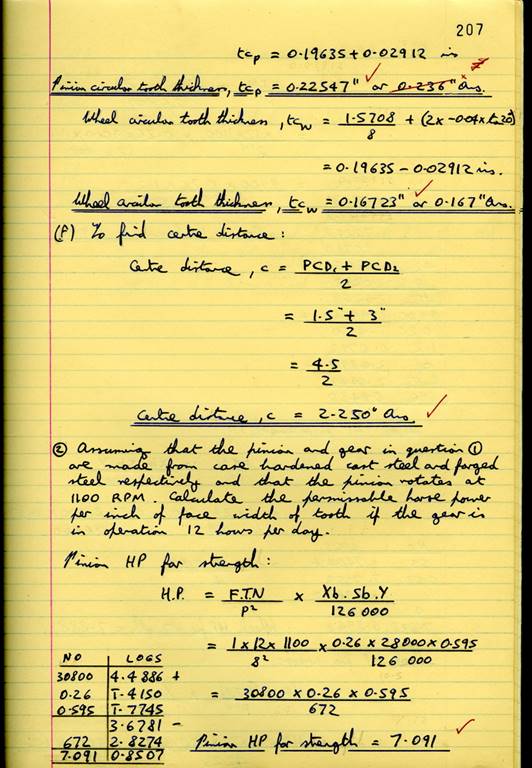 207
tcp = 0.19635 + 0.02912 in
Pinion circular tooth thickness, tcp = 0.22547" or 0.236" Ans.
Wheel circular tooth thickness, tcw = 1.5708/8 + (2 x -0.04 x tan20)
= 0.19635 - 0.02912 ins.
Wheel circular tooth thickness, tcw = 0.16723" or 0.167" Ans.
(P) To find centre distance :
Centre distance, c = PCD1 + PCD2 / 2
= 1.5" + 3" / 2
= 4.5 / 2
Centre distance, c = 2.250" Ans.
② Assuming that the pinion and gear in question ①
are made from case hardened cast steel and forged
steel respectively and that the pinion rotates at
1100 RPM. Calculate the permissable horse power
per inch of face width of tooth if the gear is
in operation 12 hours per day.
Pinion HP for strength :
H.P. = F.T.N / P² x Xb. Sb. Y / 126 000
= 1 x 12 x 1100 / 8² x 0.26 x 28000 x 0.595 / 126 000
= 30800 x 0.26 x 0.595 / 672
Pinion HP for strength = 7.091
NO LOGS
30800 4.4886 +
0.26 1̄.4150
0.595 1̄.7745
3.6781 -
672 2.8274
7.091 0.8507